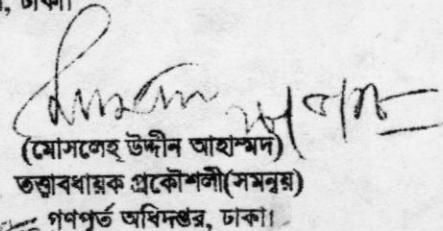 , ঢাকা।
(মোসলেহ্ উদ্দীন আহাম্মদ)
তত্ত্বাবধায়ক প্রকৌশলী(সমন্বয়)
গণপূর্ত অধিদপ্তর, ঢাকা।